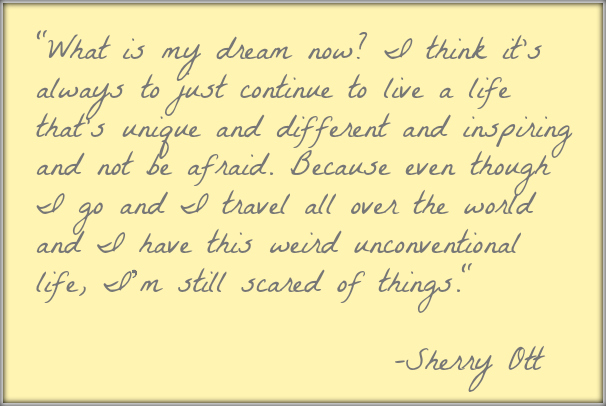 "What is my dream now? I think it's
always to just continue to live a life
that's unique and different and inspiring
and not be afraid. Because even though
I go and I travel all over the world
and I have this weird unconventional
life, I'm still scared of things."
-Sherry Ott